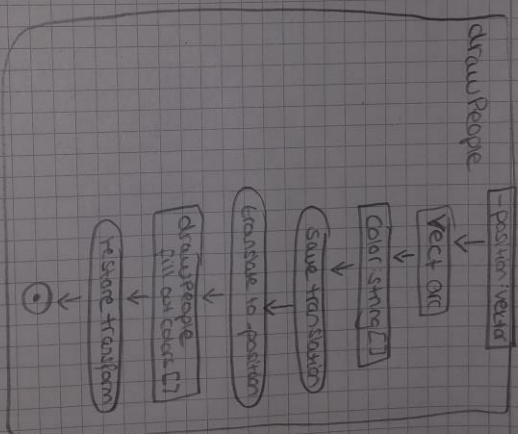 drawPeople
-position:vector
Vector
Color:string[]
save translation
translate to _position
drawPeople
fill out colors[]
restore transform